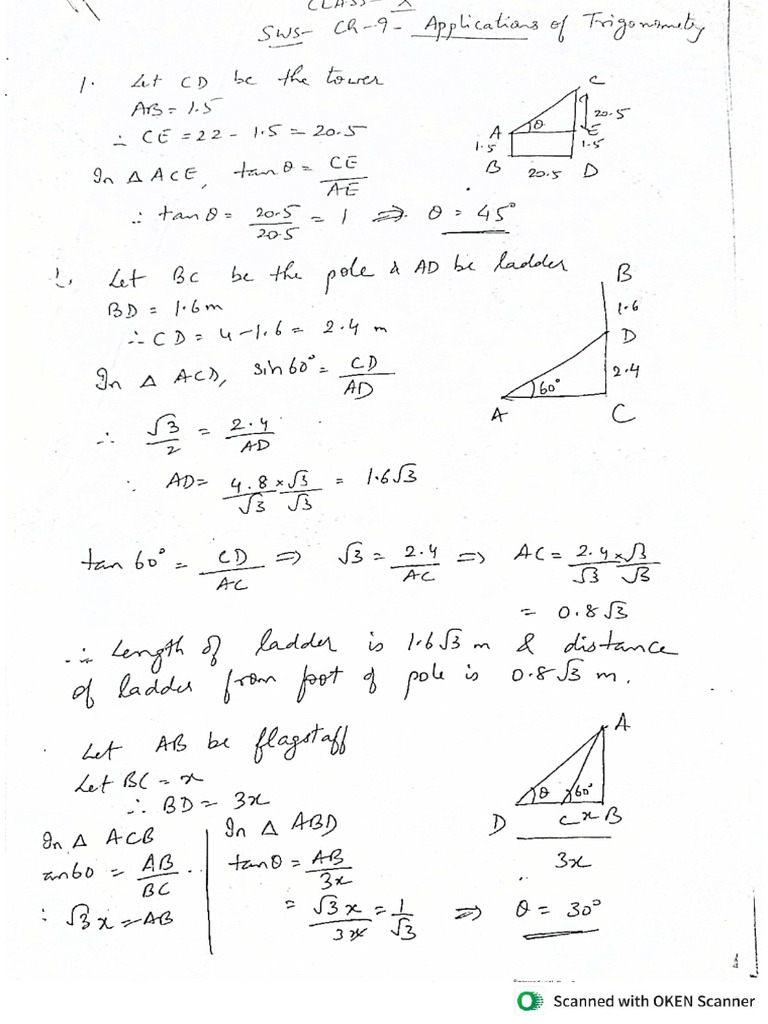 CLASS - X
SWS - Ch-9 - Applications of Trigonometry
1. Let CD be the tower
AB = 1.5
∴ CE = 22 - 1.5 = 20.5
In △ ACE, tan θ = CE/AE
∴ tan θ = 20.5/20.5 = 1 ⇒ θ = 45°
C
20.5
A θ E
1.5 1.5
B 20.5 D
Let BC be the pole & AD be ladder
BD = 1.6 m
∴ CD = 4 - 1.6 = 2.4 m
In △ ACD, sin 60° = CD/AD
∴ √3/2 = 2.4/AD
∴ AD = 4.8/√3 × √3/√3 = 1.6√3
B
1.6
D
2.4
60°
A C
tan 60° = CD/AC ⇒ √3 = 2.4/AC ⇒ AC = 2.4/√3 × √3/√3
= 0.8√3
∴ Length of ladder is 1.6√3 m & distance
of ladder from foot of pole is 0.8√3 m.
Let AB be flagstaff
Let BC = x
∴ BD = 3x
In △ ACB
tan 60 = AB/BC
∴ √3x = AB
In △ ABD
tan θ = AB/3x
= √3x/3x = 1/√3 ⇒ θ = 30°
A
θ 60°
D C x B
3x
Scanned with OKEN Scanner